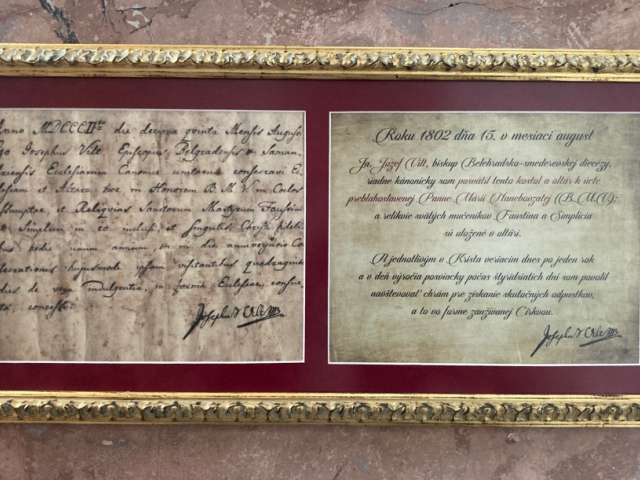 Anno MDCCCII die decima quinta Mensis Augusti
Ego Josephus Vilt Episcopus, Belgradensis et Samand
Ecclesiam Canonice consecravi Ec
et Altare hoc in Honorem B. M. V. in Coelos
Assumptae, et Reliquias Sanctorum Martyrum Faustini
et Simplicii in eo inclusi, et singulis Christi fideli
bus hodie unum annum et in die anniversario Co
hujusmodi ipsam visitantibus quadragin
dies de vera indulgentia, in forma Ecclesiae consue
ta, concessi.
Roku 1802 dňa 15. v mesiaci august
Ja, Jozef Vilt, biskup Belehradsko-smederevskej diecézy,
riadne kánonicky som posvätil tento kostol a oltár k úcte
preblahoslavenej Panne Márii Nanebovzatej (B.M.V);
a relikvie svätých mučeníkov Faustína a Simplícia
sú uložené v oltári.
A jednotlivým v Krista veriacim dnes po jeden rok
a v deň výročia posviacky počas štyridsiatich dní som povolil
navštevovať chrám pre získanie skutočných odpustkov,
a to vo forme zaužívanej Cirkvou.